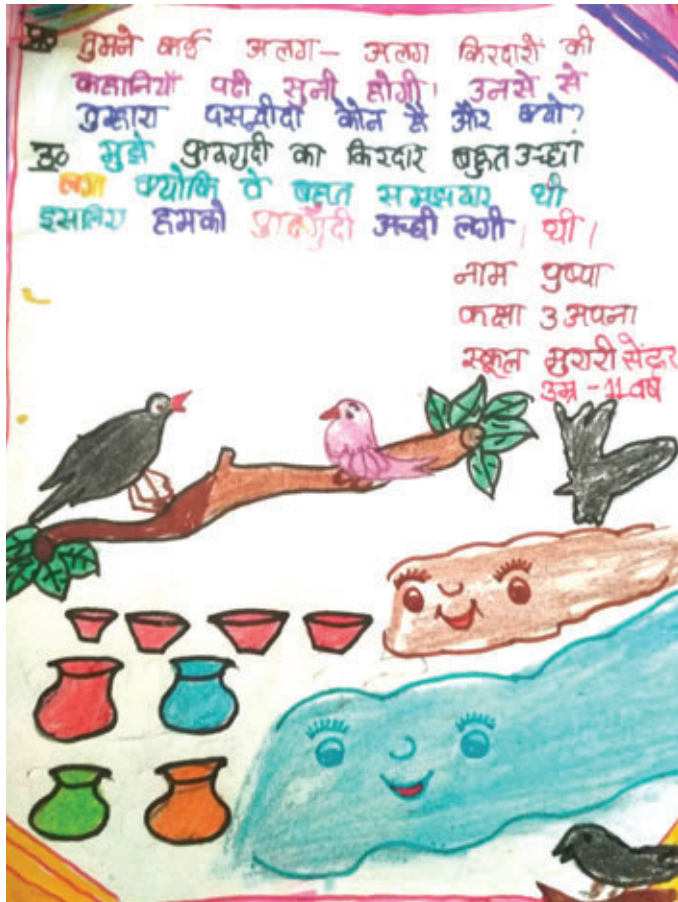 प्र० तुमने कई अलग- अलग किरदारों की
कहानियाँ पढी सुनी होगी। उनसे से
तुम्हारा पसन्दीदा कौन है और क्यो?
उ० मुझे फुदगुदी का किरदार बहुत उच्छा
लगा क्योकि वे बहुत समझदार थी
इसलिए हमको फुदगुदी अच्छी लगी। थी।
नाम पुष्पा
कक्षा 3 अपना
स्कूल मुरारी सेंटर
उम्र - 11 वर्ष